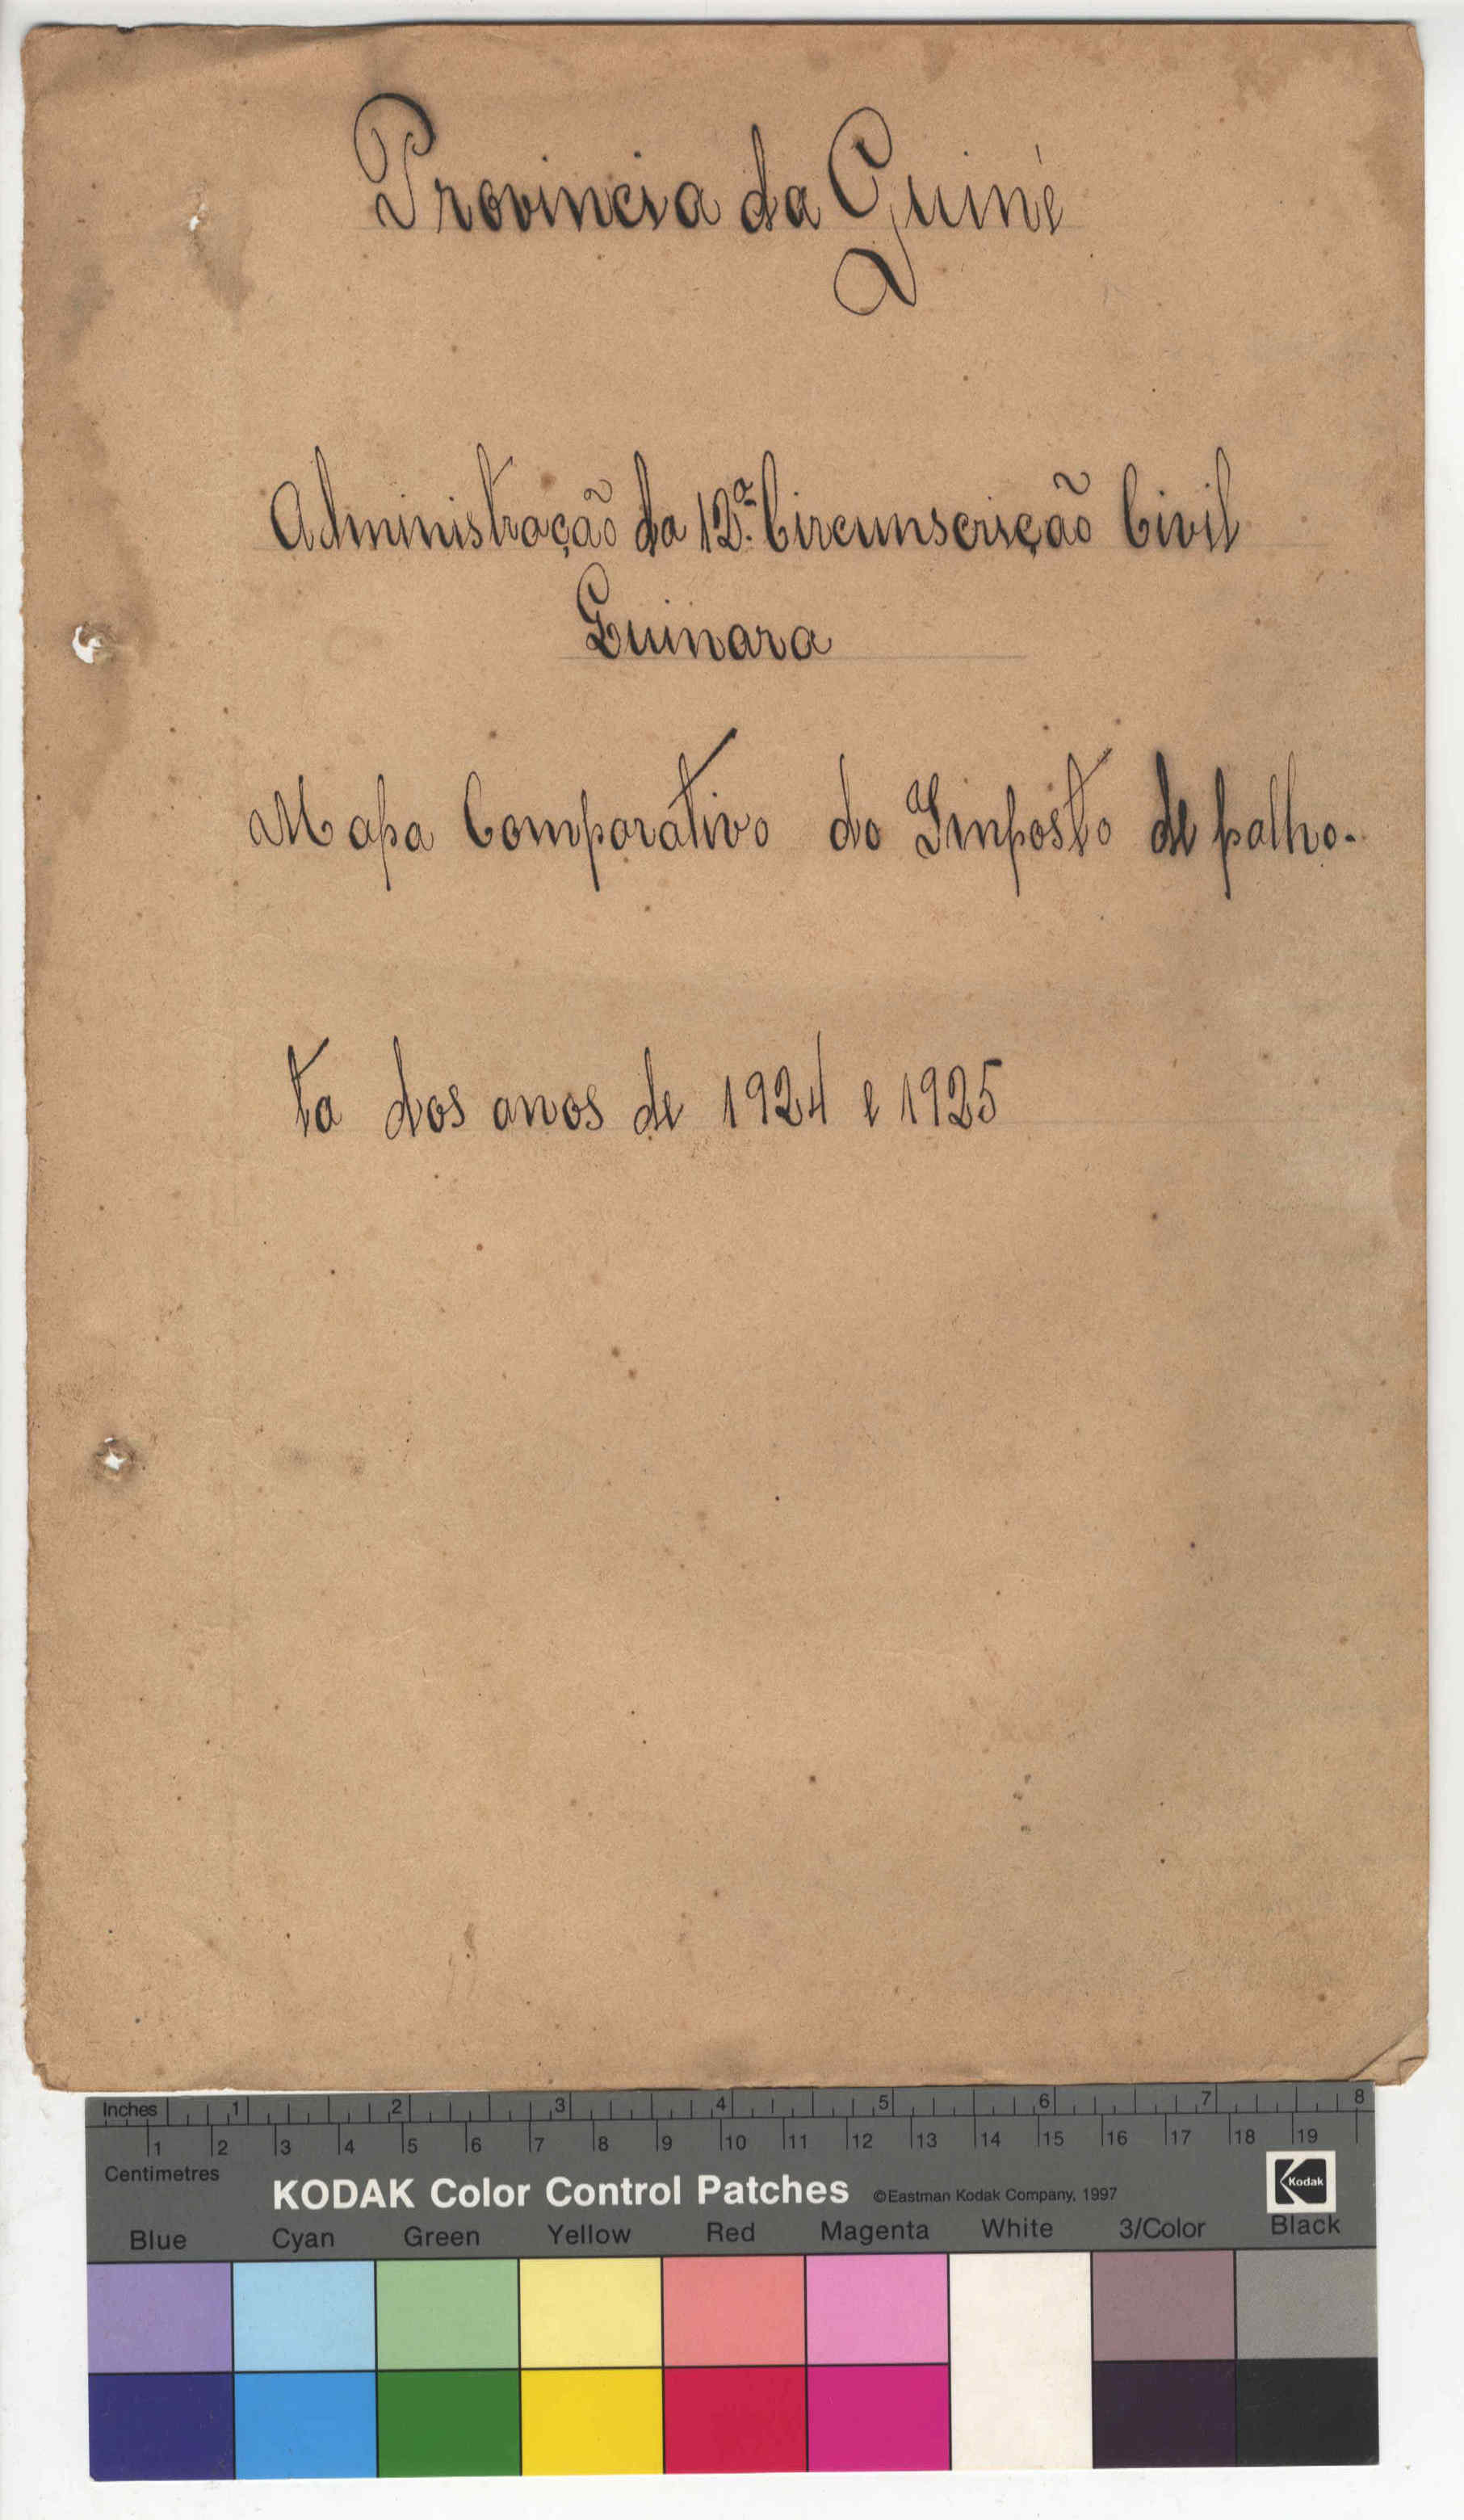 Provincia da Guiné
Administração da 12.ª Circunscrição Civil
Guinara
Mapa Comparativo do Imposto de palho-
ta dos anos de 1924 e 1925
Inches 1 2 3 4 5 6 7 8
1 2 3 4 5 6 7 8 9 10 11 12 13 14 15 16 17 18 19
Centimetres
KODAK Color Control Patches ©Eastman Kodak Company, 1997 Kodak
Blue Cyan Green Yellow Red Magenta White 3/Color Black